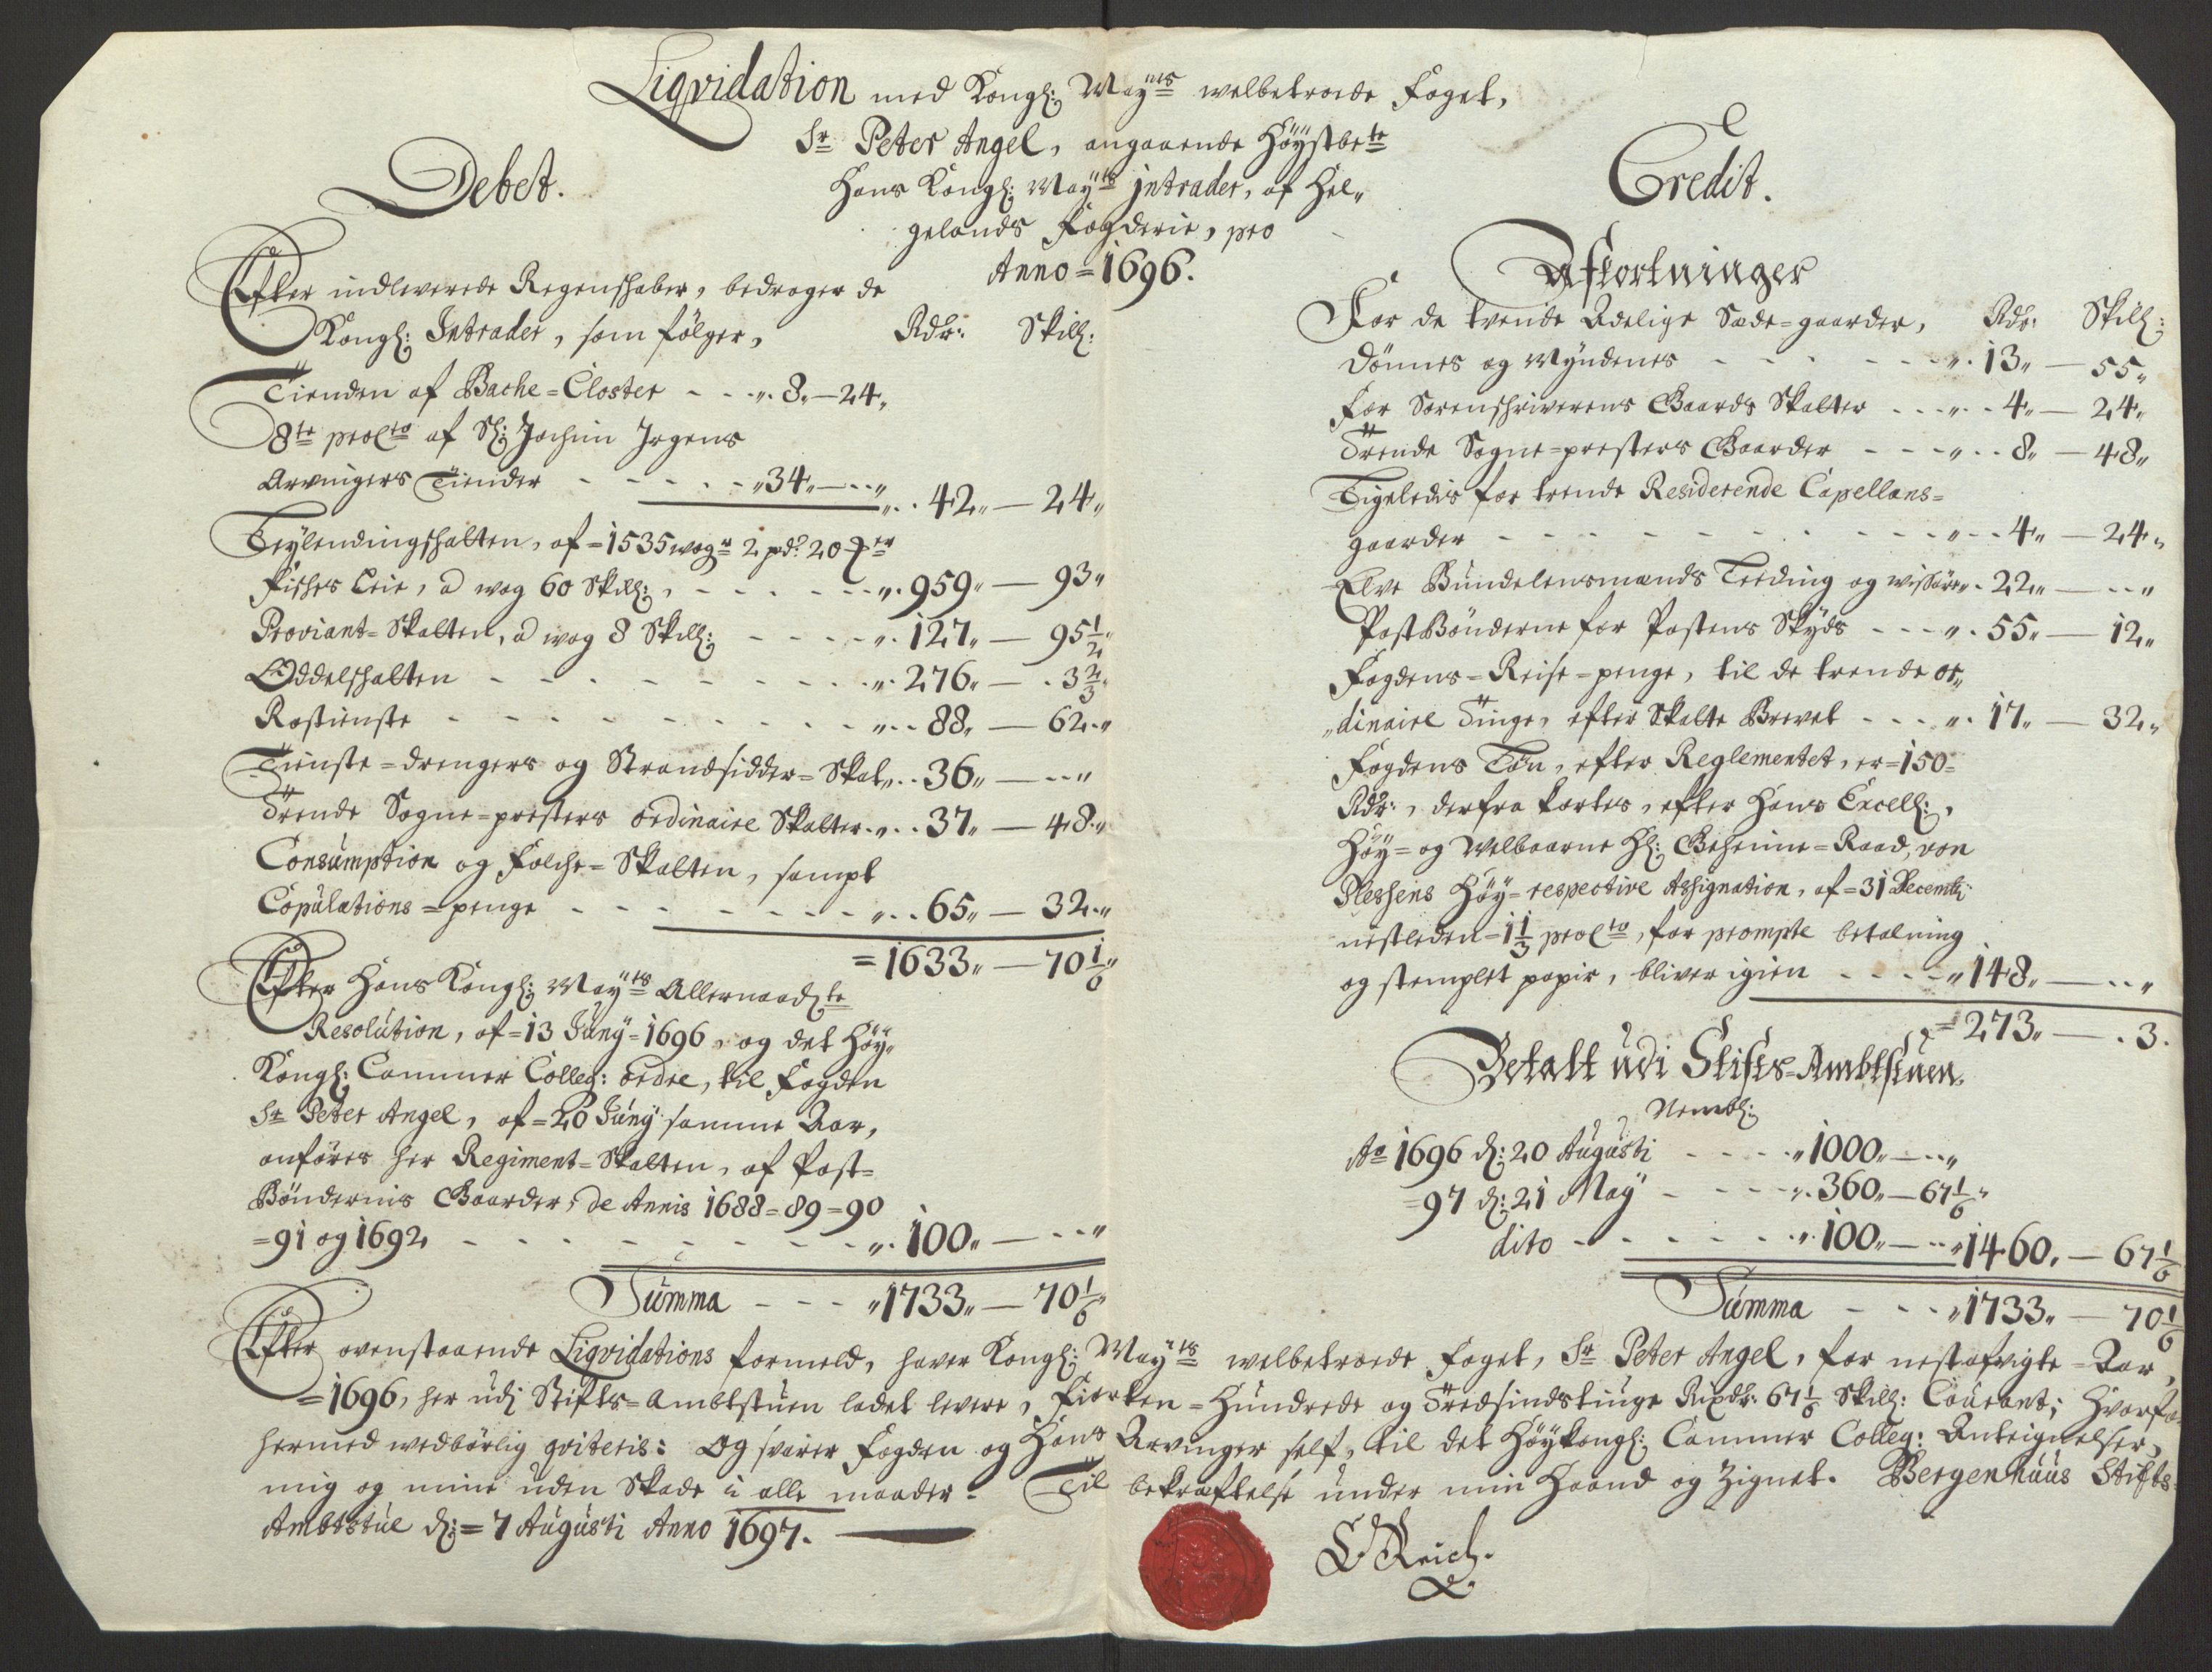 Liqvidation med Kongl: May:ts welbetroede Foget,
Sr. Peter Angel, angaaende Höystbe:te
Hans Kongl: May:ts jntrader, af Hel„
gelands Fogderie, pro
Anno = 1696.
Debet.
Efter indleverede Regenschaber, bedrager de
Kongl: Intrader, som fölger, Rdr: Skill:
Tienden af Bache-Closter - - - „. 8„ — 24„
8te proCto af Sl: Jochim Jrgens
Arvingers Tiender - - - - - „34„ — --„ „. 42„ — 24„
Leylendingschatten, af = 1535 wog:r 2 pd: 20
Fisches Leie, a wog 60 Skill: , - - - - - „. 959„ — 93„
Proviant-Skatten, a wog 8 Skill: - - - - „. 127„ — 95 1/2„
Oddelschatten - - - - - - - - „. 276„ — . 3 2/3„
Rostienste - - - - - - - - - „. 88„ — 62„
Tienste-drengers og Strandsidder-Skat „. 36„ — --„
Trende Sogne-presters ordinaire Skatter „. 37„ — 48„
Consumption og Folche-Skatten, sampt
Copulations-penge - - - - - - - „. 65„ — 32„
= 1633„ — 70 1/6„
Efter Hans Kongl: May:ts Allernaad:te
Resolution, af = 13 Juny = 1696, og det Höy„
Kongl: Cammer Colleg: ordre, til Fogden
Sr. Peter Angel, af = 20 Juny samme Aar,
anföres her Regiment-Skatten, af Post=
Böndernis Gaarder, de Annis 1688 = 89 = 90
= 91 og 1692 - - - - - - - - - „. 100„ — --„
Summa - - - „1733„ — 70 1/6„
Credit.
Afkortninger
For de tvende Adelige Sæde-gaarder, Rdr: Skill:
Dönnes og Myndenes - - - - - - „. 13„ — 55„
For Sorenschriverens Gaards Skatter - - - „. 4„ — 24„
Trende Sogne-presters Gaarder - - - „. 8„ — 48„
Ligeledis for trende Residerende Capellans=
gaarder - - - - - - - - - - „. 4„ — 24„
Elve Bundelensmænds Leeding og wissöre „. 22„ — --„
PostBönderne for Postens Skyds - - - „. 55„ — 12„
Fogdens-Reise-penge, til de trende or„
„dinaire Tinge, efter Skatte Brevet - - - „. 17„ — 32„
Fogdens Løn, efter Reglementet, er = 150=
Rdr:, derfra kortes, efter Hans Excell: ,
Höy- og Welbaarne Hl: Geheime-Raad, von
Plessens Höy-respective Assignation, af = 31 Decemb:
nestleden = 1 1/3 proCto, for prompte betalning
og stemplet papir, bliver igien - - - - „148„ — --„
= 273„ — . 3.
Betalt udi Stifts-Ambtstuen.
Nembl:
Ao 1696 d: 20 Augusti - - - - „1000„ — --„
= 97 d: 21 May - - - - „. 360„ — 67 1/6„
dito - - - - - - „. 100„ — --„ 1460„ — 67 1/6
Summa - - - „1733„ — 70 1/6
Efter ovenstaaende Liqvidations formeld, haver Kongl: May:ts welbetroede Foget, Sr. Peter Angel, for nestafvigte-Aar,
= 1696, her udj Stifts-Ambtstuen ladet levere, Fiorten-Hundrede og Tredsindstiuge Rixdr: 67 1/6 Skill: Courant; Hvorfor
hermed wedbörlig qviteris: Og svarer Fogden og Hans Arvinger self, til det Höykongl: Cammer Colleg: Anteignelser,
mig og mine uden Skade i alle maader. Til bekræftelse under min Haand og Zignet. Bergenhuus Stifts=
Ambtstue d: = 7 Augusti Anno 1697.
Reich.